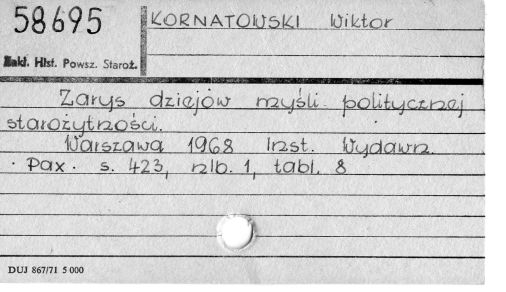 58695
KORNATOWSKI Wiktor
Zakł. Hist. Powsz. Staroż.
Zarys dziejów myśli politycznej
starożytności.
Warszawa 1968 Inst. Wydawn.
· Pax · s. 423, nlb. 1, tabl. 8
DUJ 867/71 5 000